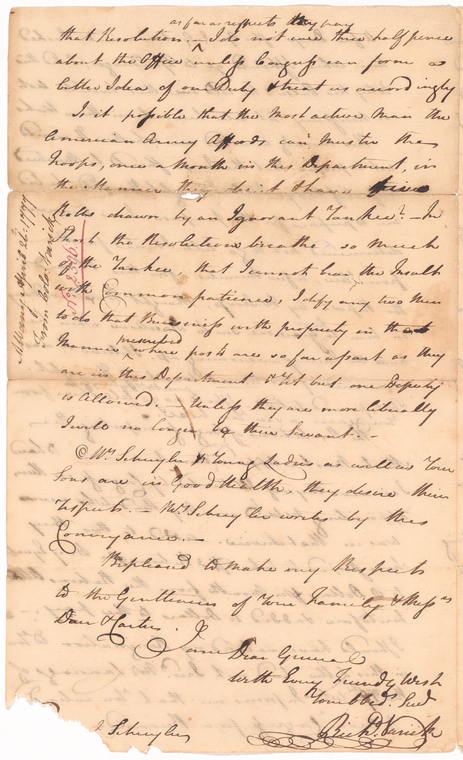 as far as respects my pay
that Resolution. I do not care three half pence
about the Office unless Congress can form a
better Idea of our Duty & treat us accordingly
Is it possible that the most active Man the
American Army Affords can muster the
Troops, once a Month in this Department, in
the Manner they do it & have
Rolls drawn by an Ignorant Yankee? – In
short the Resolutions breathe so much
of the Yankee, that I cannot bear the Insult
with Common patience, I defy any two Men
to do that Business with propriety in that
Manner prescribed where posts are so far apart as they
are in this Department & Yet but one Deputy
is Allowed. – Unless they are more liberally
I will no longer be their Servant. –
Mrs. Schuyler & Young Ladies as well as Your
Sons are in Good Health, they desire their
respects. – Mrs. Schuyler writes by this
Conveyance. –
Be pleased to make my Respects
to the Gentlemen of Your Family & Messrs
& Carter.
I am Dear General
with Every friendly Wish
Your Obed. Servt
Richd. Varick
Schuyler
Albany April 26. 1777
from Colo. Varick